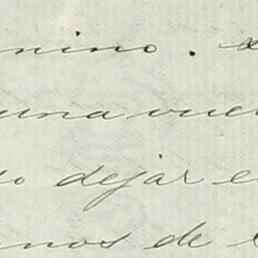 nino .
una vuel
lo dejar e
nos de l